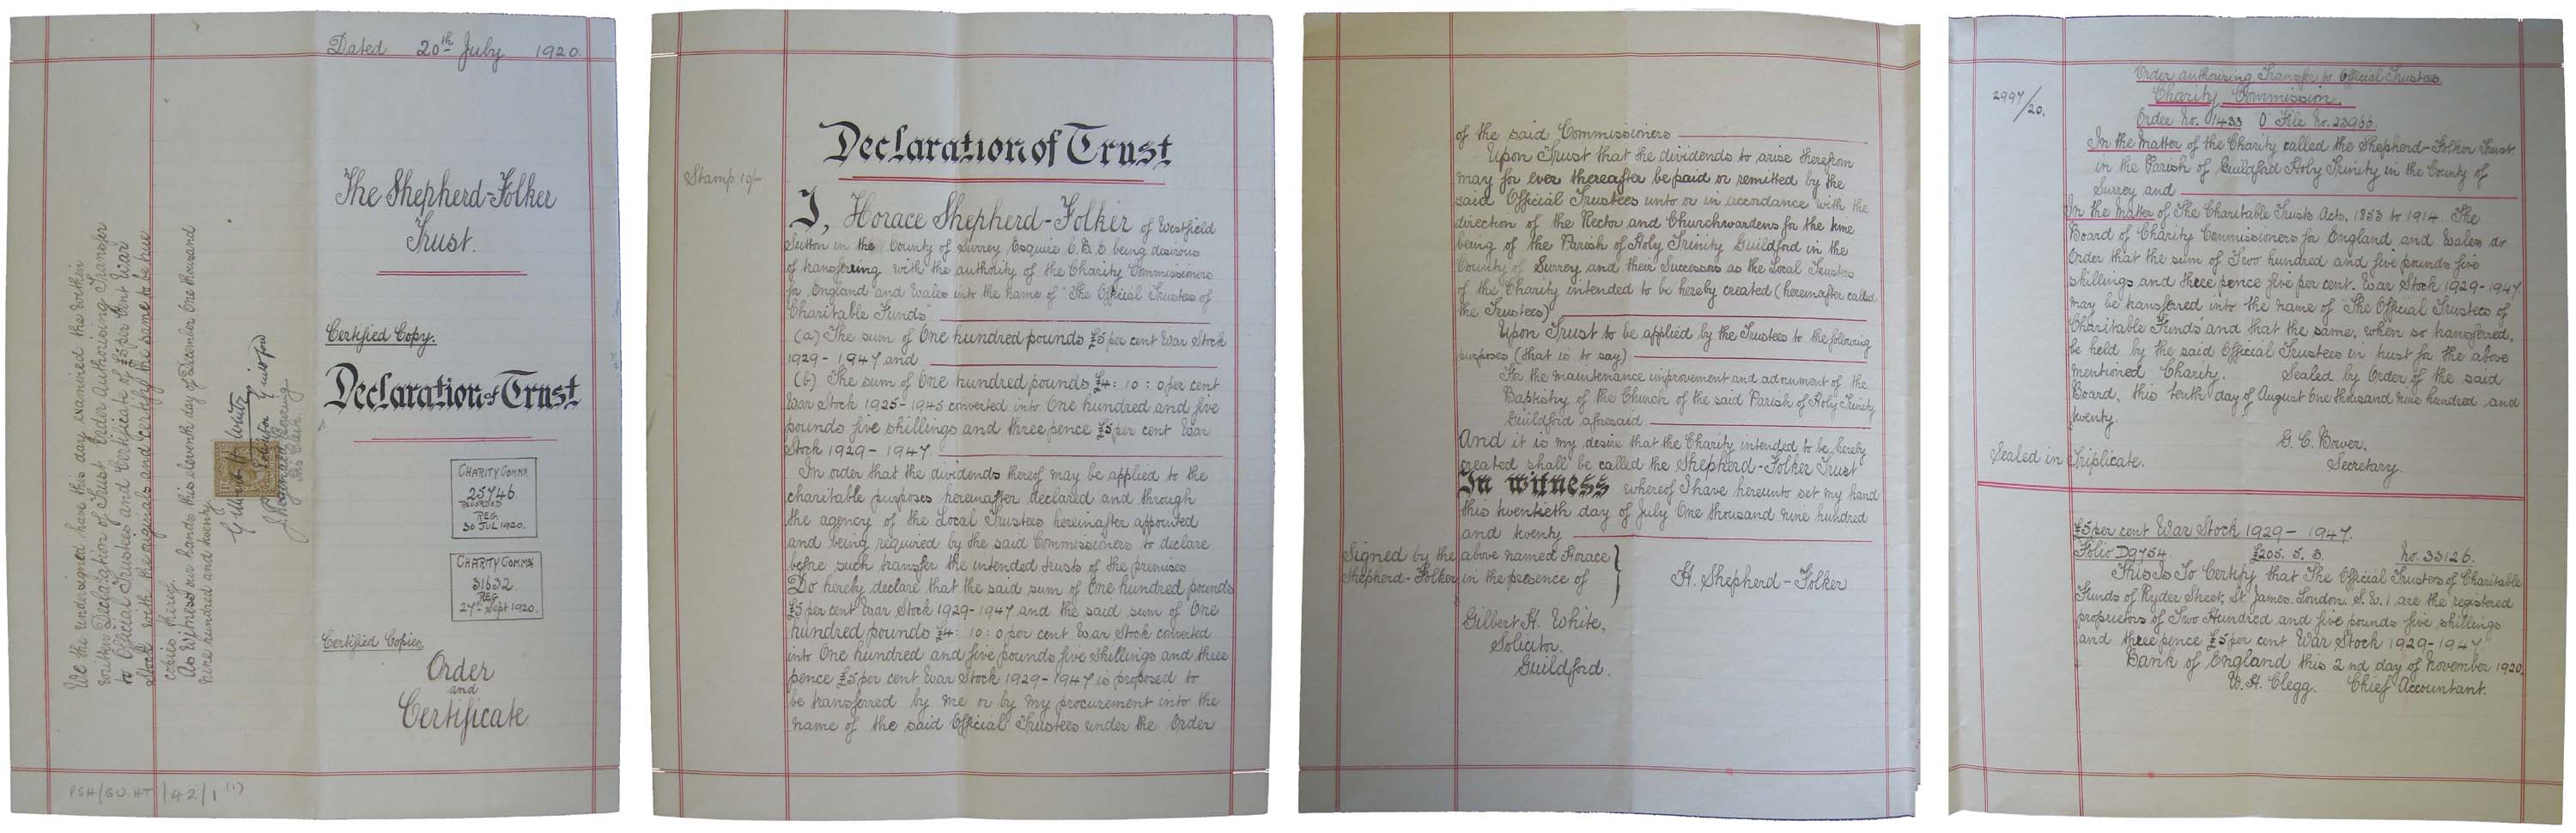 Dated 20th July 1920.
The Shepherd-Folker
Trust.
Certified Copy.
Declaration of Trust
CHARITY COMMN.
25746
RECORDED
REG.
30 JUL 1920.
CHARITY COMMN.
31632
REG.
27th Sept 1920.
Certified Copies
Order
and
Certificate.
We the undersigned have this day examined the within
written Declaration of Trust Order Authorising Transfer
to Official Trustees and Certificate of £5 per Cent War
Stock with the originals and certify the same to be true
copies thereof.
As Witness our hands this eleventh day of December One thousand
nine hundred and twenty.
Gilbert H White
Solicitor Guildford
J. Reginald
his Clerk.
PSH/GU.HT/42/1 (1)
Declaration of Trust
Stamp 10/-
I, Horace Shepherd-Folker of Westfield
Sutton in the County of Surrey Esquire C.B.E being desirous
of transferring with the authority of the Charity Commissioners
for England and Wales into the name of "The Official Trustees of
Charitable Funds"
(a) The sum of One hundred pounds £5 per cent War Stock
1929-1947 and
(b) The sum of One hundred pounds £4: 10: 0 per cent
War Stock 1925-1945 converted into One hundred and five
pounds five shillings and three pence £5 per cent War
Stock 1929-1947.
In order that the dividends thereof may be applied to the
charitable purposes hereinafter declared and through
the agency of the Local Trustees hereinafter appointed
and being required by the said Commissioners to declare
before such transfer the intended trusts of the premises
Do hereby declare that the said sum of One hundred pounds
£5 per cent War Stock 1929-1947 and the said sum of One
hundred pounds £4: 10: 0 per cent War Stock converted
into One hundred and five pounds five shillings and three
pence £5 per cent War Stock 1929-1947 is proposed to
be transferred by me or by my procurement into the
name of the said Official Trustees under the Order
of the said Commissioners
Upon Trust that the dividends to arise therefrom
may for ever thereafter be paid or remitted by the
said Official Trustees unto or in accordance with the
direction of the Rector and Churchwardens for the time
being of the Parish of Holy Trinity Guildford in the
County of Surrey and their Successors as the Local Trustees
of the Charity intended to be hereby created (hereinafter called
the Trustees)
Upon Trust to be applied by the Trustees to the following
purposes (that is to say)
For the maintenance improvement and adornment of the
Baptistry of the Church of the said Parish of Holy Trinity
Guildford aforesaid
And it is my desire that the Charity intended to be hereby
created shall be called the Shepherd-Folker Trust
In witness whereof I have hereunto set my hand
this twentieth day of July One thousand nine hundred
and twenty
Signed by the above named Horace
Shepherd-Folker in the presence of
H. Shepherd-Folker
Gilbert H. White,
Solicitor.
Guildford.
Order authorising Transfer to Official Trustees
Charity Commission.
2997/20.
Order No. 1433 D File No. 23966.
In the Matter of the Charity called the Shepherd-Folker Trust
in the Parish of Guildford Holy Trinity in the County of
Surrey and
In the Matter of The Charitable Trusts Acts, 1853 to 1914. The
Board of Charity Commissioners for England and Wales do
Order that the sum of Two hundred and five pounds five
shillings and three pence five per cent. War Stock 1929-1947
may be transferred into the name of "The Official Trustees of
Charitable Funds and that the same, when so transferred,
be held by the said Official Trustees in trust for the above
mentioned Charity. Sealed by Order of the said
Board, this tenth day of August One thousand nine hundred and
twenty.
G. C. Bower.
Secretary.
Sealed in Triplicate.
£5 per cent War Stock 1929-1947.
Folio D9754. £205. 5. 3. No. 33126.
This Is To Certify that The Official Trustees of Charitable
Funds of Ryder Street, St James. London. S.W.1 are the registered
proprietors of Two Hundred and five pounds five shillings
and three pence £5 per cent War Stock 1929-1947
Bank of England this 2nd day of November 1920.
W. H. Clegg. Chief Accountant.